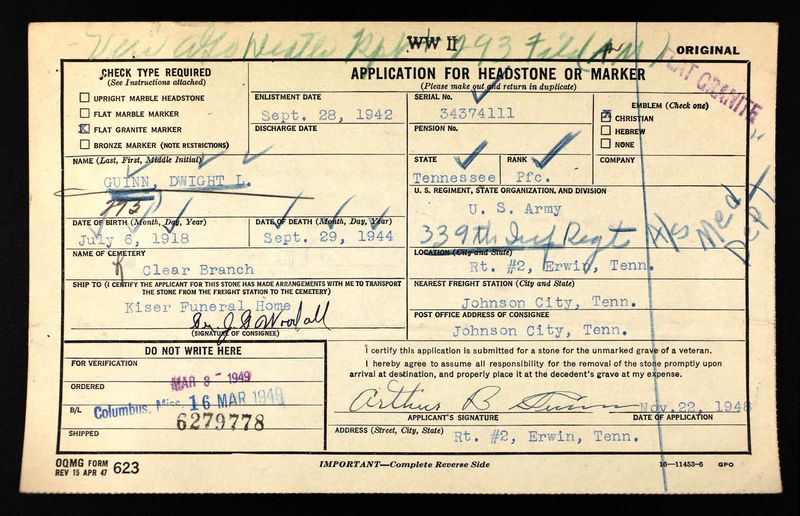 WW II 293 File
ORIGINAL
FLAT GRANITE
CHECK TYPE REQUIRED
(See Instructions attached)
APPLICATION FOR HEADSTONE OR MARKER
(Please make out and return in duplicate)
UPRIGHT MARBLE HEADSTONE
FLAT MARBLE MARKER
X FLAT GRANITE MARKER
BRONZE MARKER (NOTE RESTRICTIONS)
ENLISTMENT DATE
Sept. 28, 1942
DISCHARGE DATE
SERIAL No.
34374111
PENSION No.
EMBLEM (Check one)
X CHRISTIAN
HEBREW
NONE
NAME (Last, First, Middle Initial)
GUINN, DWIGHT L.
293
STATE
Tennessee
RANK
Pfc.
COMPANY
U. S. REGIMENT, STATE ORGANIZATION, AND DIVISION
U. S. Army
339th Inf Regt
Med Dept
DATE OF BIRTH (Month, Day, Year)
July 6, 1918
DATE OF DEATH (Month, Day, Year)
Sept. 29, 1944
NAME OF CEMETERY
Clear Branch
LOCATION (City and State)
Rt. #2, Erwin, Tenn.
SHIP TO (I CERTIFY THE APPLICANT FOR THIS STONE HAS MADE ARRANGEMENTS WITH ME TO TRANSPORT
THE STONE FROM THE FREIGHT STATION TO THE CEMETERY)
Kiser Funeral Home
(SIGNATURE OF CONSIGNEE)
NEAREST FREIGHT STATION (City and State)
Johnson City, Tenn.
POST OFFICE ADDRESS OF CONSIGNEE
Johnson City, Tenn.
DO NOT WRITE HERE
FOR VERIFICATION
ORDERED MAR 8 - 1949
B/L Columbus, Miss. 16 MAR 1949
6279778
SHIPPED
I certify this application is submitted for a stone for the unmarked grave of a veteran.
I hereby agree to assume all responsibility for the removal of the stone promptly upon
arrival at destination, and properly place it at the decedent's grave at my expense.
Arthur B Guinn Nov. 22, 1948
APPLICANT'S SIGNATURE DATE OF APPLICATION
ADDRESS (Street, City, State) Rt. #2, Erwin, Tenn.
OQMG FORM
REV 15 APR 47 623
IMPORTANT—Complete Reverse Side
16—11453-6 GPO